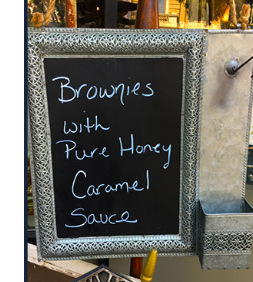 Brownies
with
Pure Honey
Caramel
Sauce